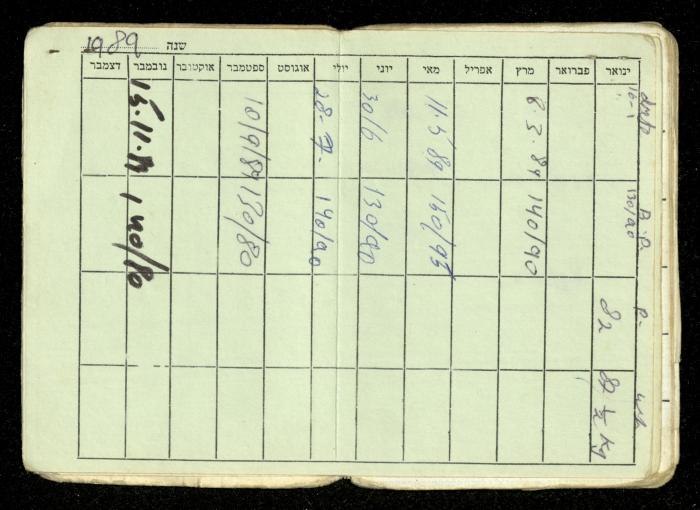 שנה 1989
ינואר פברואר מרץ אפריל מאי יוני יולי אוגוסט ספטמבר אוקטובר נובמבר דצמבר
date
B.P.
P-
wt.
130/90
82
Kg
8.3.89
140/90
11.5.89
150/95
30/6
130/90
28.7.
140/90
10/9/89
130/80
15.11.89
140/80